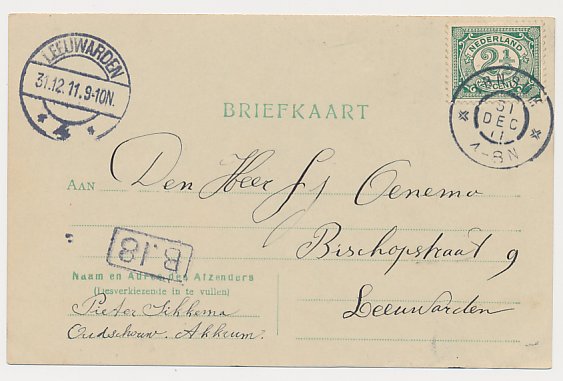 LEEUWARDEN
31.12.11.9-10N.
NEDERLAND
2½
CENT
31
DEC
11
4-8N
BRIEFKAART
AAN Den Heer Sj Oenema
Bischopstraat 9
Leeuwarden
B.18
Naam en Adres des Afzenders
(Desverkiezende in te vullen)
Pieter Sikkema
Oudschouw. Akkrum.